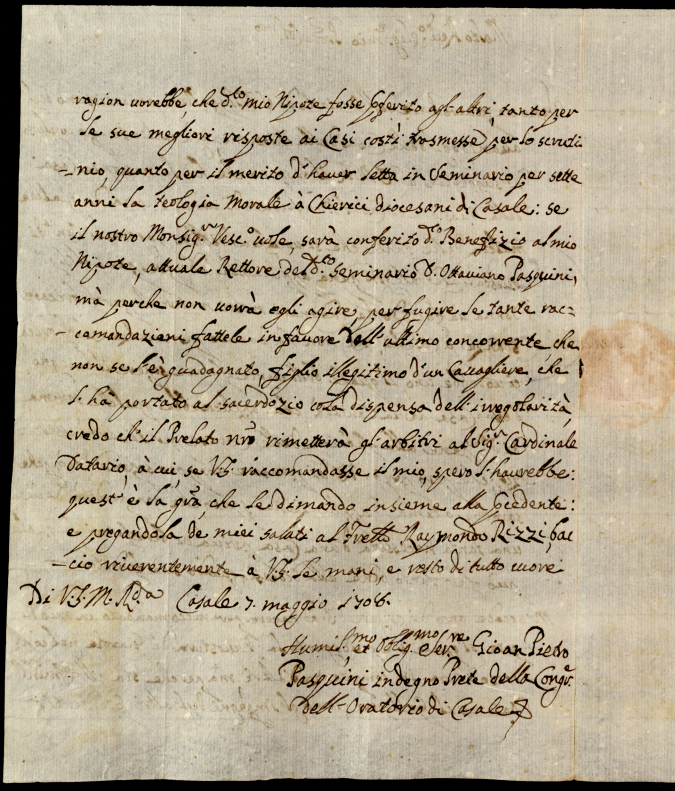 ragion vorebbe, che d.to mio Nipote fosse preferito agl'altri, tanto per
le sue megliori risposte ai Casi costì trasmesse per lo scruti
-nio, quanto per il merito d'haver letta in Seminario per sette
anni la Teologia Morale à Chierici diocesani di Casale: se
il nostro Monsig.r Vesc.o vole, sarà conferito d.to Benefizio al mio
Nipote, attuale Rettore del d.to Seminario D. Ottaviano Pasquini,
mà perche non vorrà egli agire, per fugire le tante rac=
-comandazioni fattele in favore dell'ultimo concorrente che
non se l'è guadagnato, figlio illegitimo d'un Cavagliere, che
l'hà portato al sacerdozio colà dispensa dell'irregolarità,
credo ch'il Prelato nro rimetterà gl'arbitri al Sig.r Cardinale
Datario, à cui se V.S. raccomandasse il mio, spero l'haurebbe:
quest'è la gra, che le dimando insieme alla precedente:
e pregandola de miei saluti al Raymondo Rizzi, bac
-cio riverentemente à V.S. le mani, e resto di tutto cuore
Di V.S. M. R.da Casale 7. maggio 1706.
Humil.mo et Obblig.mo Ser.re Gioan Pietro
Pasquini indegno Prete della Congr.
dell'Oratorio di Casale